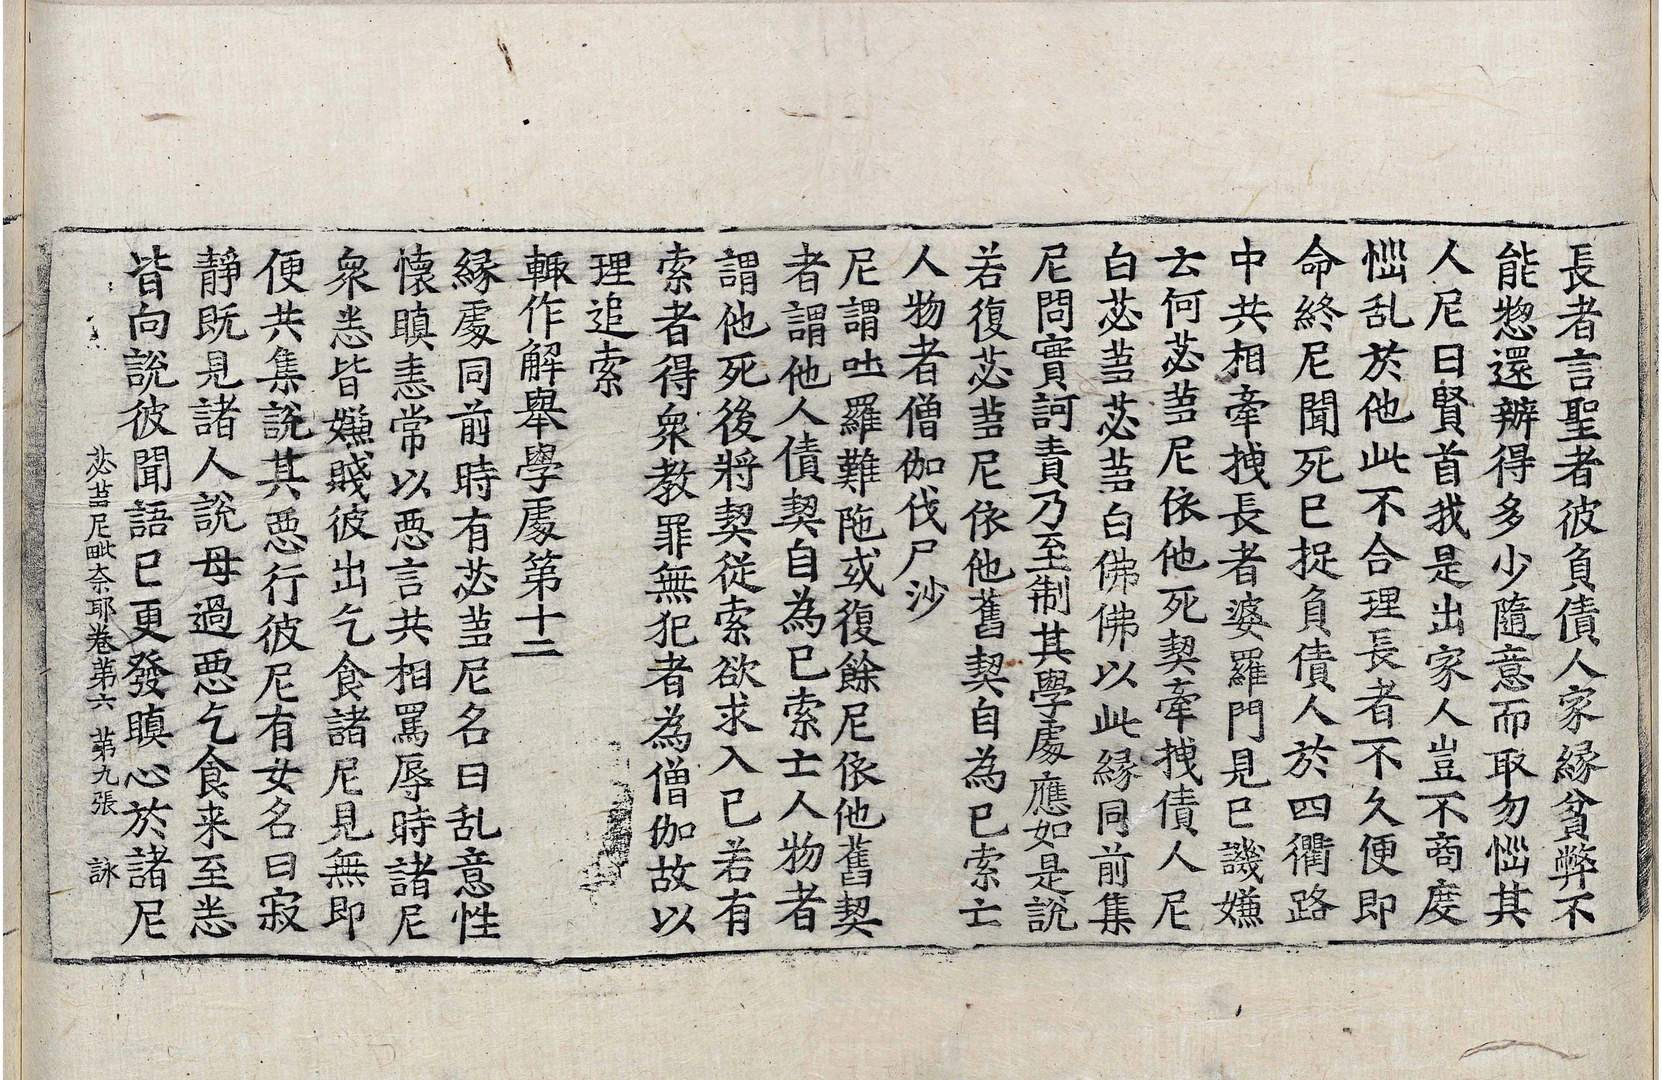 長者言聖者彼負債人家緣貧弊不
能惣還辦得多少隨意而取勿惱其
人尼曰賢首我是出家人豈不商度
惱乱於他此不合理長者不久便即
命終尼聞死已捉負債人於四衢路
中共相牽拽長者婆羅門見已譏嫌
云何苾芻尼依他死契牽拽債人尼
白苾芻苾芻白佛佛以此緣同前集
尼問實訶責乃至制其學處應如是說
若復苾芻尼依他舊契自為已索亡
人物者僧伽伐尸沙
尼謂吐羅難陁或復餘尼依他舊契
者謂他人債契自為已索亡人物者
謂他死後將契從索欲求入已若有
索者得衆教罪無犯者為僧伽故以
理追索
輙作解舉學處第十二
緣處同前時有苾芻尼名曰乱意性
懷瞋恚常以惡言共相罵辱時諸尼
衆悉皆嫌賤彼出乞食諸尼見無即
便共集說其惡行彼尼有女名曰寂
靜既見諸人說母過惡乞食来至悉
皆向說彼聞語已更發瞋心於諸尼
苾芻尼毗奈耶卷第六 第九張 詠